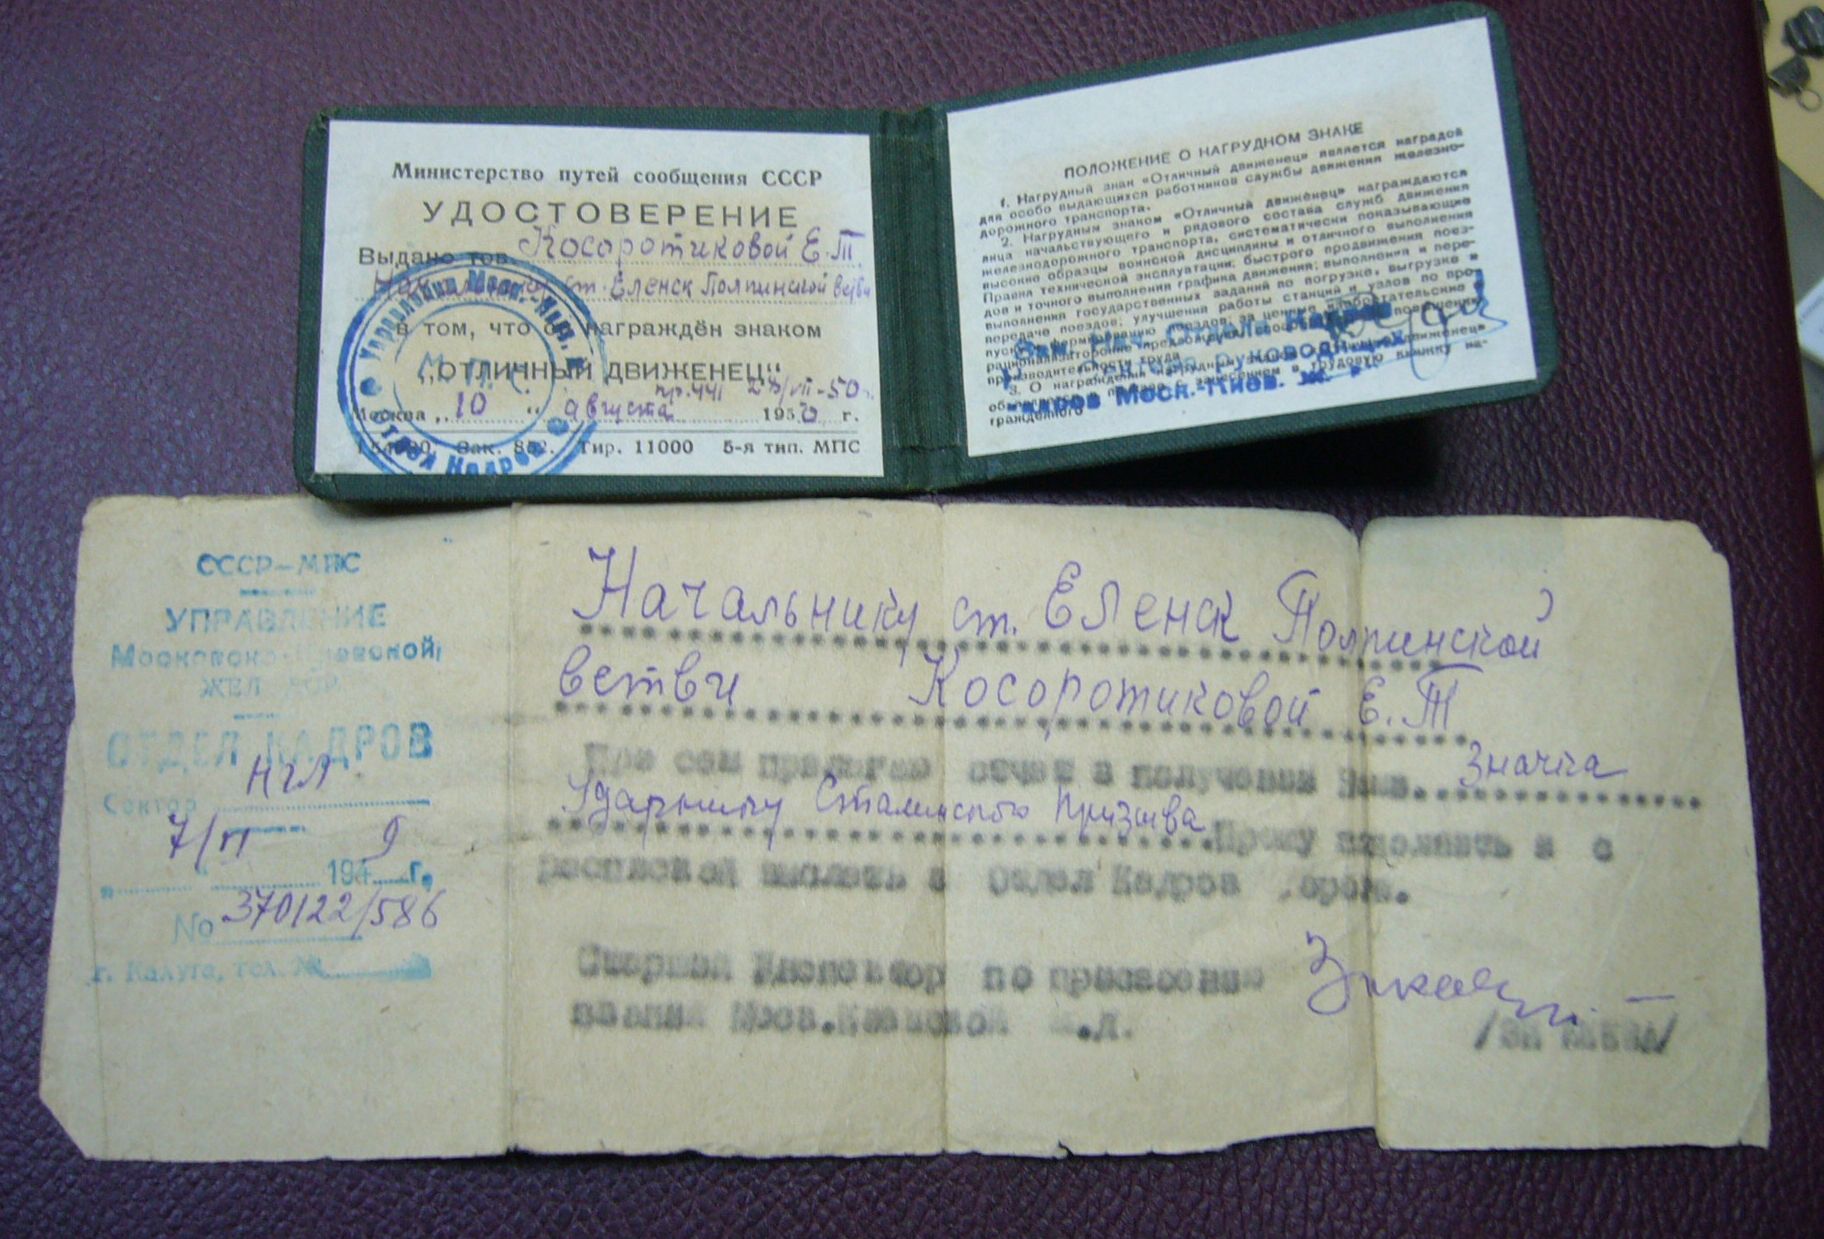 Министерство путей сообщения СССР
УДОСТОВЕРЕНИЕ
Выдано тов. Косоротиковой Е.Т.
ст. Еленск Полпинской ветви
в том, что он награждён знаком
„ОТЛИЧНЫЙ ДВИЖЕНЕЦ“
пр.441 27/VII-50г.
Москва „10“ августа 1950 г.
Зак. 852. Тир. 11000 5-я тип. МПС
Отдел Кадров
ПОЛОЖЕНИЕ О НАГРУДНОМ ЗНАКЕ
1. Нагрудный знак «Отличный движенец» является наградой
для особо выдающихся работников службы движения железно-
дорожного транспорта.
2. Нагрудным знаком «Отличный движенец» награждаются
лица начальствующего и рядового состава служб движения
железнодорожного транспорта, систематически показывающие
высокие образцы воинской дисциплины и отличного выполнения
Правил технической эксплуатации; быстрого продвижения поез-
дов и точного выполнения графика движения; выполнения и пере-
выполнения государственных заданий по погрузке, выгрузке и
передаче поездов; улучшения работы станций и узлов по про-
производительности труда
3. О награждении
гражденного
Зам. Нач. Отдела Кадров
руководящих
кадров Моск.-Киев. ж. д.
СССР-МПС
УПРАВЛЕНИЕ
Московско-Киевской
ЖЕЛ. ДОР.
ОТДЕЛ КАДРОВ
Сектор НГЛ
7/II 9
194 г.
No 370122/586
г. Калуга, тел. №
Начальнику ст. Еленск Полпинской
ветви Косоротиковой Е.Т
При сем прилагаю отчет в получении Вами. Значка
Ударнику Сталинского Призыва. Прошу заполнить и с
распиской выслать в Отдел Кадров дороги.
Старший Инспектор по присвоению
званий Моск.Киевской ж.д.